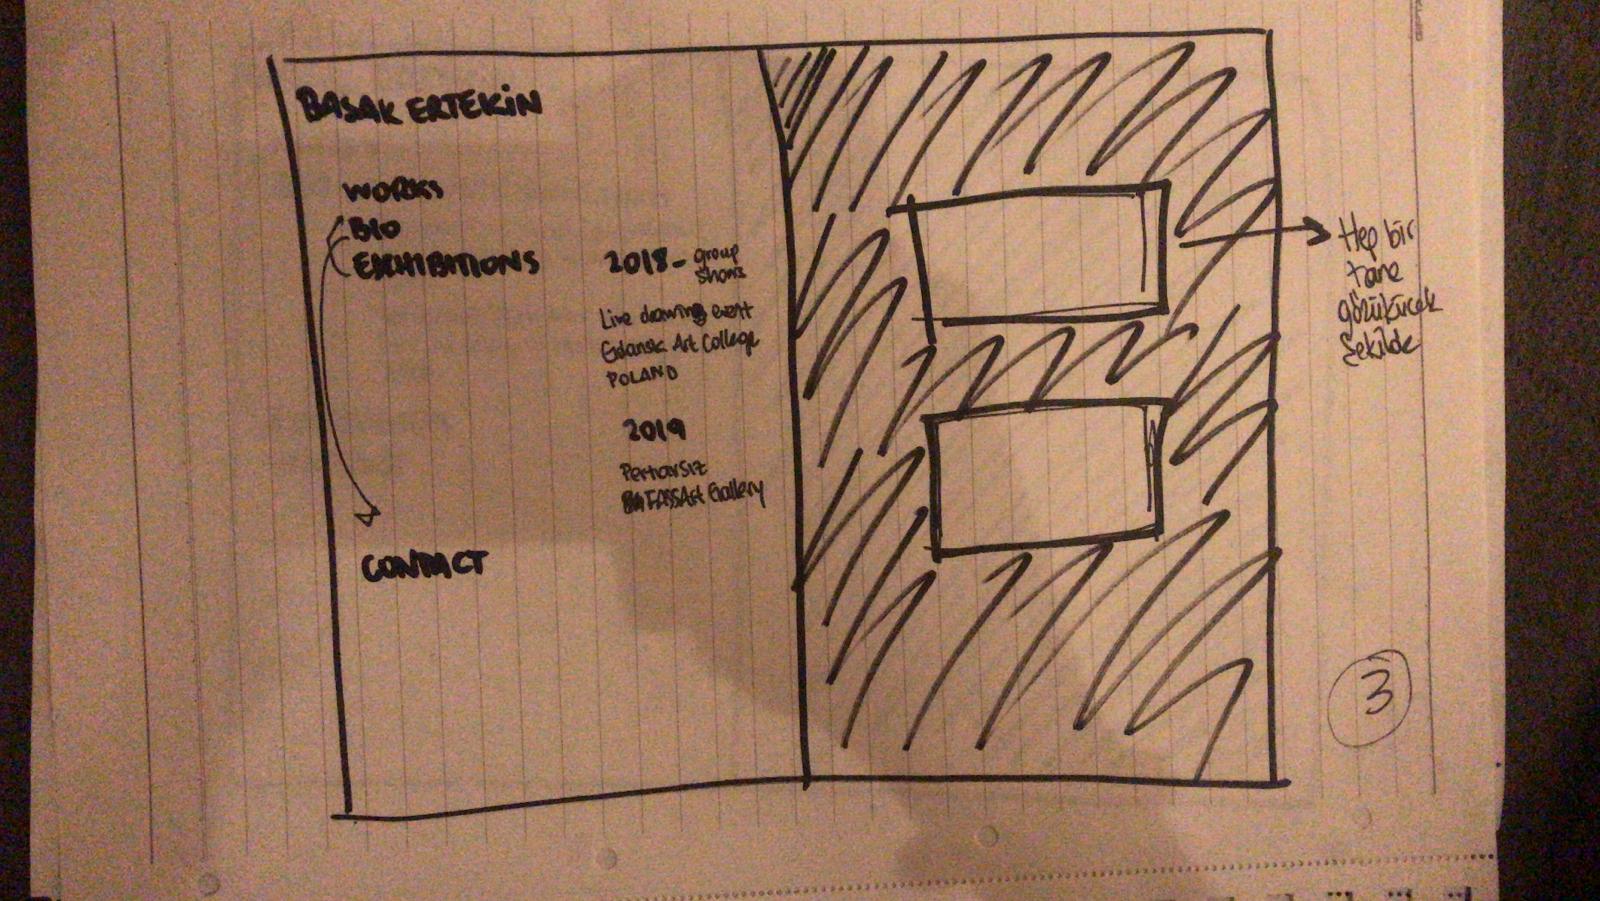 BASAK ERTEKİN
WORKS
BIO
EXHIBITIONS
2018- group
shows
Live drawing event
Gdansk Art College
POLAND
2019
Art Gallery
CONTACT
Hep bir
tane
gözükücek
şekilde
3